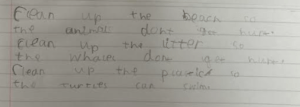 Clean up the beach so
the animal dont get hurt
Clean up the litter so
the whales dont get hurt
Clean up the plastic so
the turtles can